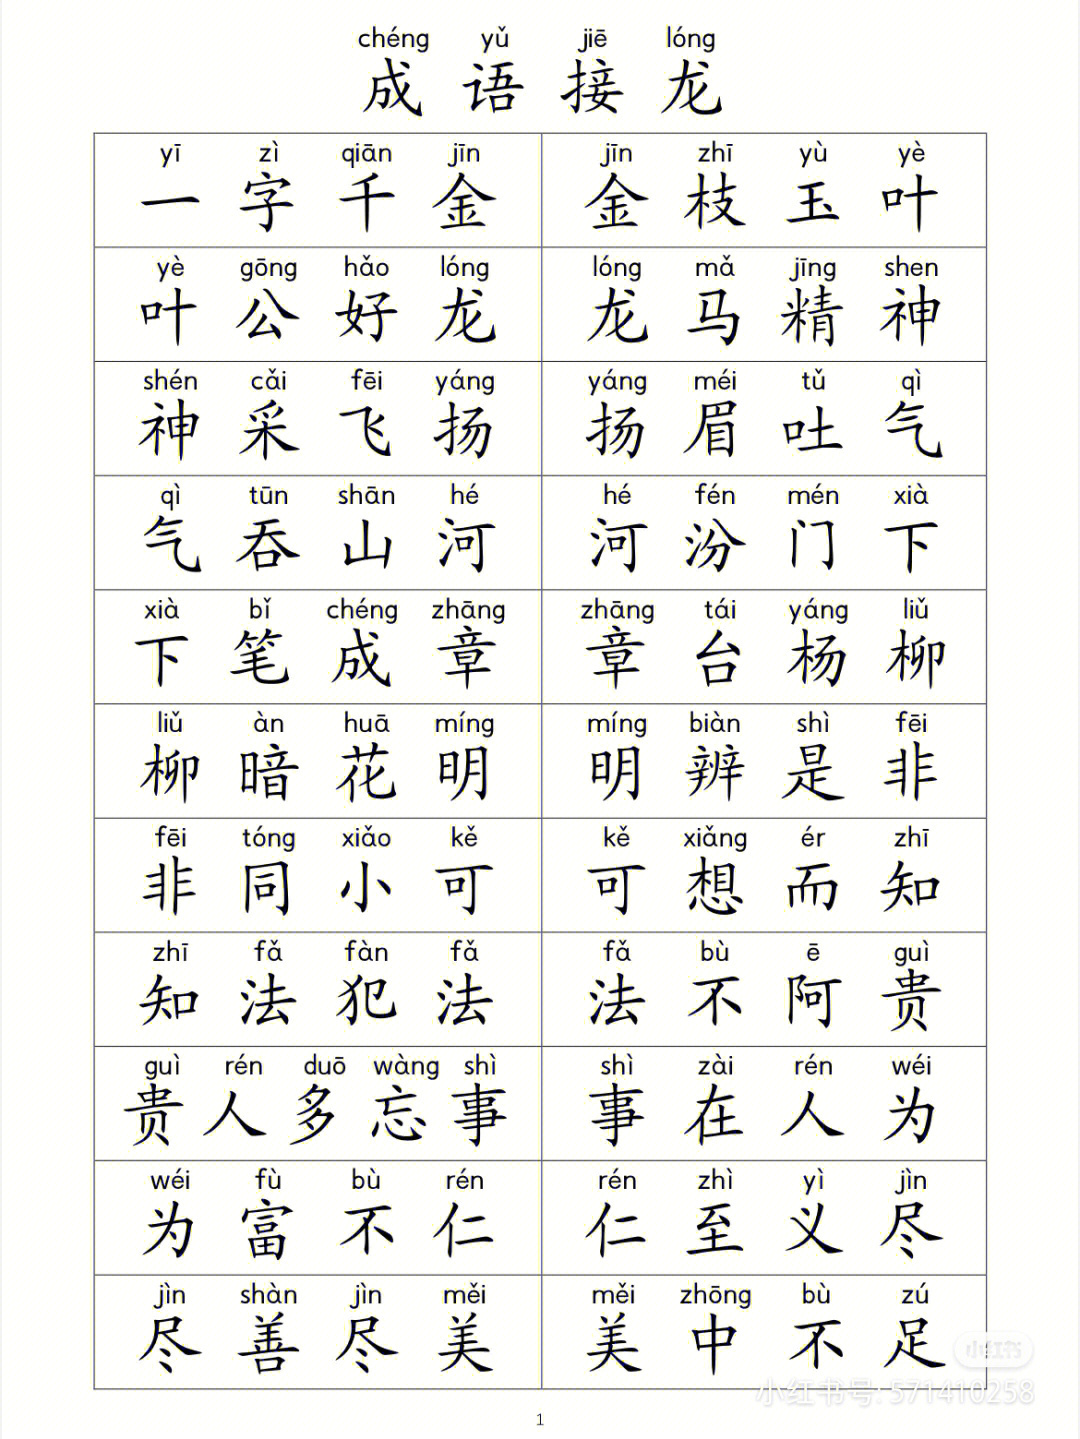 chéng yǔ jiē lóng
成语接龙
yī zì qiān jīn jīn zhī yù yè
一字千金 金枝玉叶
yè gōng hǎo lóng lóng mǎ jīng shen
叶公好龙 龙马精神
shén cǎi fēi yáng yáng méi tǔ qì
神采飞扬 扬眉吐气
qì tūn shān hé hé fén mén xià
气吞山河 河汾门下
xià bǐ chéng zhāng zhāng tái yáng liǔ
下笔成章 章台杨柳
liǔ àn huā míng míng biàn shì fēi
柳暗花明 明辨是非
fēi tóng xiǎo kě kě xiǎng ér zhī
非同小可 可想而知
zhī fǎ fàn fǎ fǎ bù ē guì
知法犯法 法不阿贵
guì rén duō wàng shì shì zài rén wéi
贵人多忘事 事在人为
wéi fù bù rén rén zhì yì jìn
为富不仁 仁至义尽
jìn shàn jìn měi měi zhōng bù zú
尽善尽美 美中不足
小红书
小红书号: 571410258
1